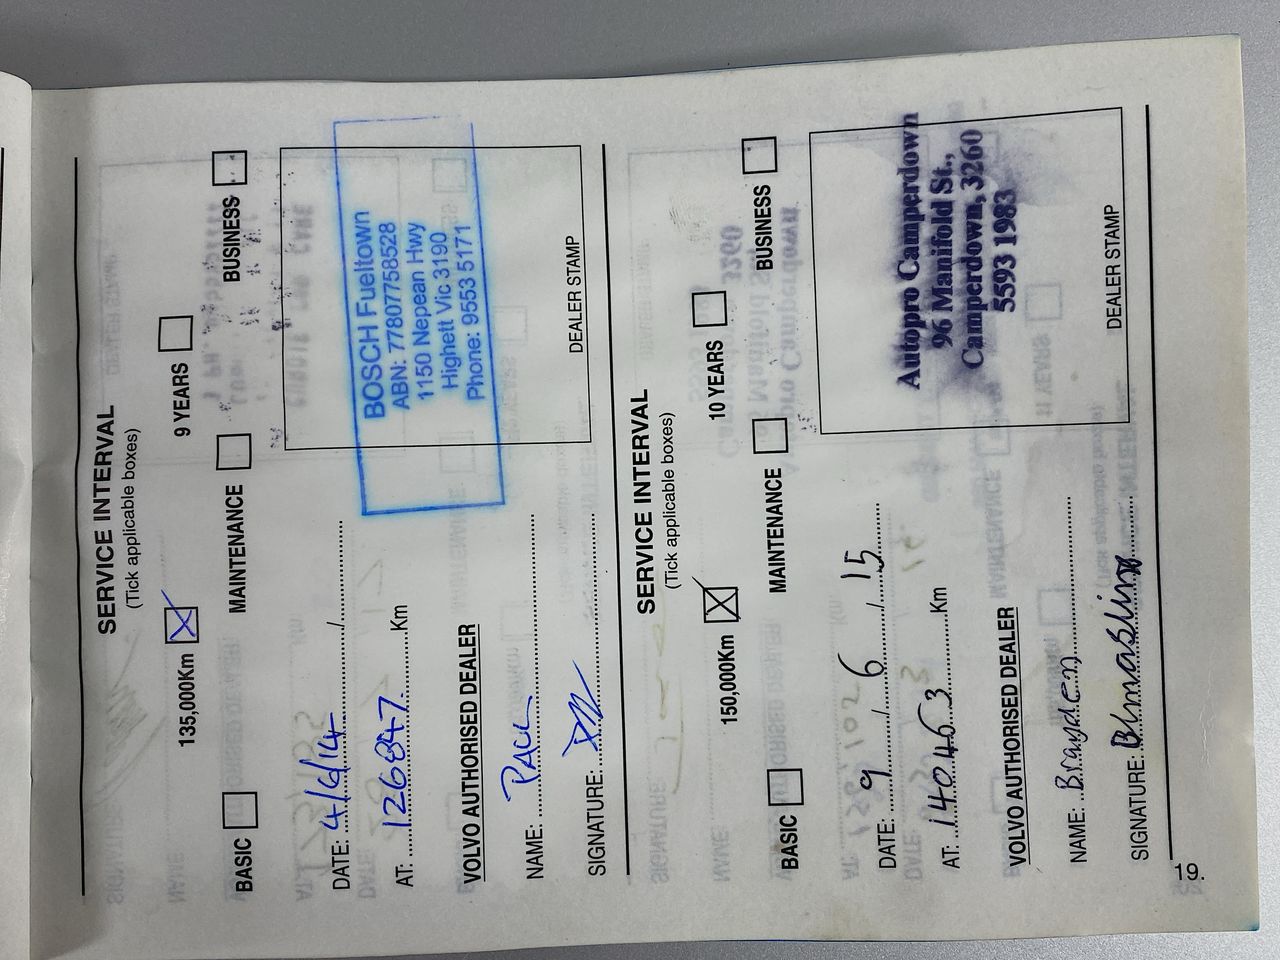 SERVICE INTERVAL
(Tick applicable boxes)
135,000Km 9 YEARS
BASIC MAINTENANCE BUSINESS
DATE: 4/6/14 /
AT: 126847 Km
VOLVO AUTHORISED DEALER
NAME: PAUL
SIGNATURE:
BOSCH Fueltown
ABN: 77807758528
1150 Nepean Hwy
Highett Vic 3190
Phone: 9553 5171
DEALER STAMP
SERVICE INTERVAL
(Tick applicable boxes)
150,000Km 10 YEARS
BASIC MAINTENANCE BUSINESS
DATE: 9 / 6 / 15
AT: 140463 Km
VOLVO AUTHORISED DEALER
NAME: Brayden
SIGNATURE:
Autopro Camperdown
96 Manifold St.,
Camperdown, 3260
5593 1983
DEALER STAMP
19.